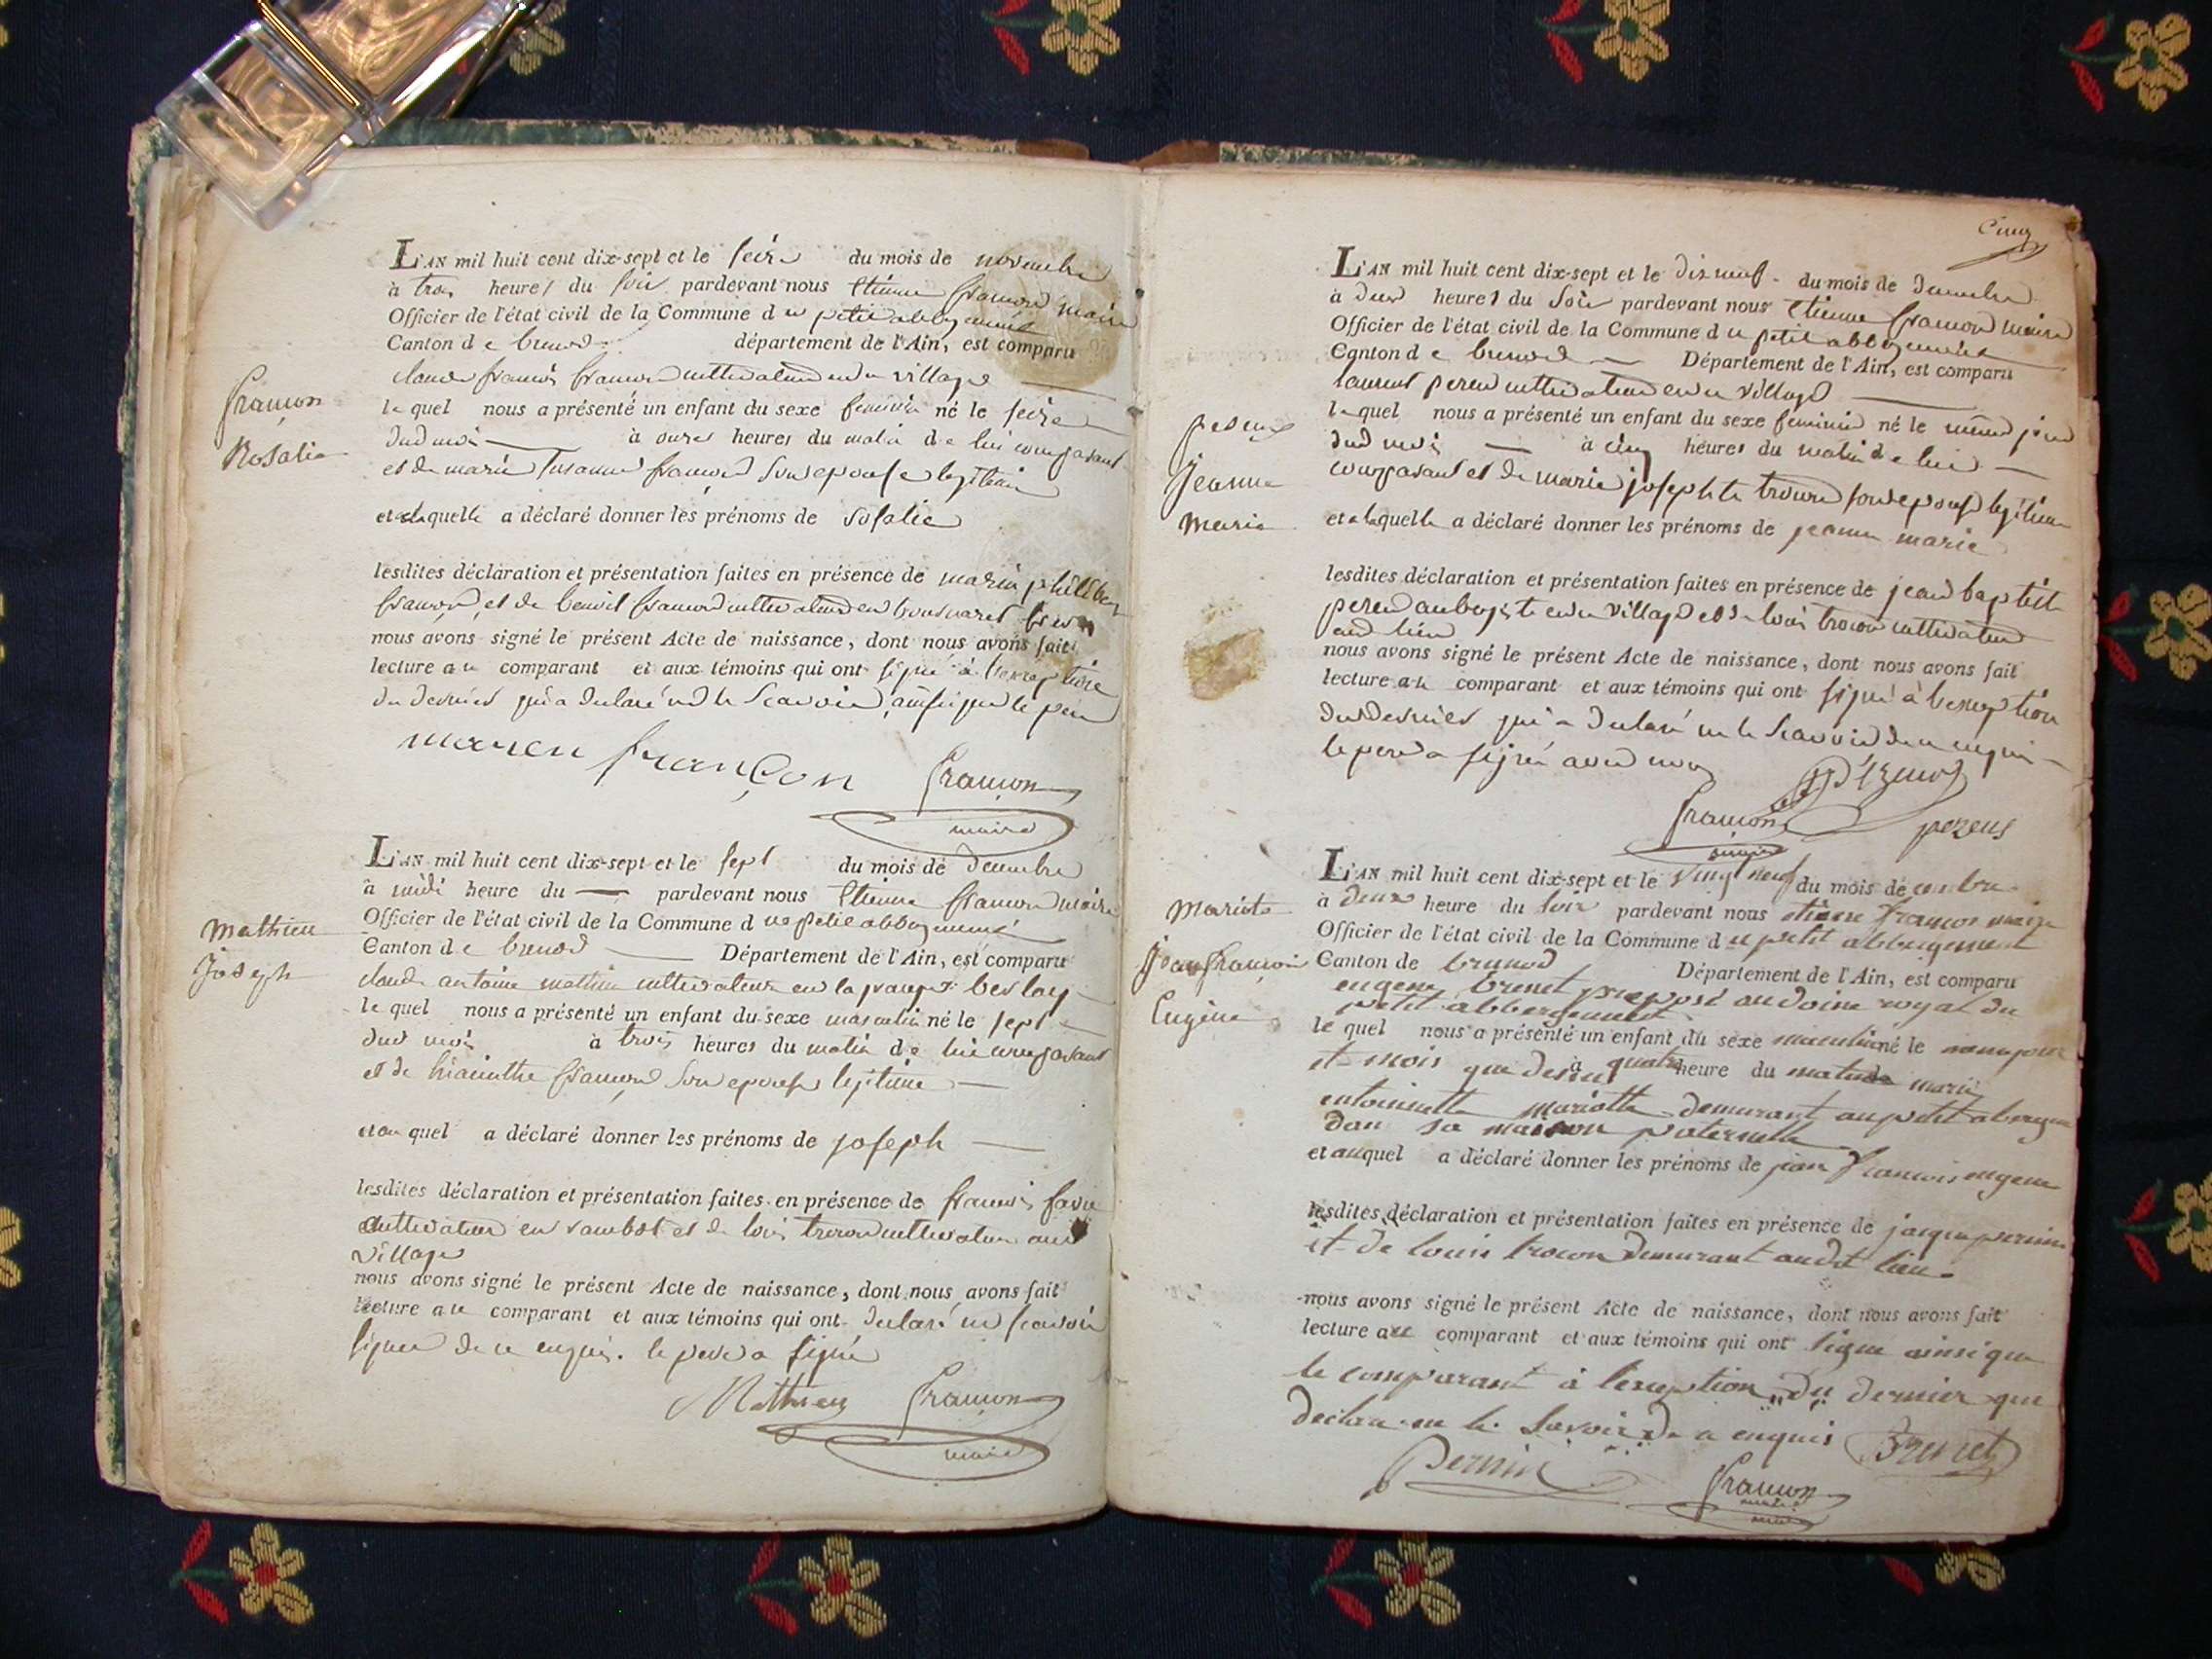 L'AN mil huit cent dix-sept et le seize du mois de novembre
à trois heures du soir pardevant nous Etienne françon maire
Officier de l'état civil de la Commune du petit abbergement
Canton de brenod département de l'Ain, est comparu
claude françois françon cultivateur en ce village
lequel nous a présenté un enfant du sexe feminin né le seize
dud mois à onzes heures du matin de lui comparant
et de marie susanne françon son epouse legitime
et a laquelle a déclaré donner les prénoms de rosalie
lesdites déclaration et présentation faites en présence de marin philibert
françon et de benoit françon cultivateurs en
nous avons signé le présent Acte de naissance, dont nous avons fait
lecture au comparant et aux témoins qui ont signé à l'exception
du dernier qui a declaré ne le scavoir, ainsi que le pere
françon
Rosalie
maren françon françon
maire
L'AN mil huit cent dix-sept et le sept du mois de decembre
à midi heure du — pardevant nous Etienne françon maire
Officier de l'état civil de la Commune du petit abbergement
Canton de brenod — Département de l'Ain, est comparu
claude antoine mathieu cultivateur en la
lequel nous a présenté un enfant du sexe masculin né le sept
dud mois à trois heures du matin de lui comparant
et de hiacinthe françon son epouse legitime —
et au quel a déclaré donner les prénoms de joseph —
lesdites déclaration et présentation faites en présence de françois favre
cultivateur en et de louis trocon cultivateur aud
village
nous avons signé le présent Acte de naissance, dont nous avons fait
lecture au comparant et aux témoins qui ont declaré ne scavoir
signer de ce enquis. le pere a signé
mathieu
joseph
Mathieu françon
maire
Cinq
L'AN mil huit cent dix-sept et le dix neuf du mois de decembre
à deux heures du soir pardevant nous Etienne françon maire
Officier de l'état civil de la Commune du petit abbergement
Canton de brenod — Département de l'Ain, est comparu
laurent cultivateur en ce village
lequel nous a présenté un enfant du sexe feminin né le même jour
dud mois — à cinq heures du matin de lui —
comparant et de marie josephte trocon son epouse legitime
et a laquelle a déclaré donner les prénoms de jeanne marie
lesdites déclaration et présentation faites en présence de jean baptiste
aubergiste en ce village et de louis trocon cultivateur
aud lieu
nous avons signé le présent Acte de naissance, dont nous avons fait
lecture au comparant et aux témoins qui ont signé à l'exception
du dernier qui a declaré ne le scavoir de ce enquis —
le pere a signé avec nous
jeanne
marie
françon
maire
L'AN mil huit cent dix-sept et le vingt neuf du mois décembre
à deux heure du soir pardevant nous etienne françon maire
Officier de l'état civil de la Commune du petit abbergement
Canton de brenod Département de l'Ain, est comparu
eugene brenet preposé au doine royal du
petit abbergement
lequel nous a présenté un enfant du sexe masculin né le meme jour
et mois que desus à quatre heure du matin de marie
entoinette mariotte demurant au petit abergem
dan sa maison paternelle
et auquel a déclaré donner les prénoms de jean francois eugene
lesdites déclaration et présentation faites en présence de jacque pernin
et de louis trocon demurant audit lieu.
nous avons signé le présent Acte de naissance, dont nous avons fait
lecture au comparant et aux témoins qui ont signe ainsi que
le comparant à l'exception du dernier que
declare ne le savoir de ce enquis
mariote
jean françois
Eugène
Brenet
Pernin françon
maire